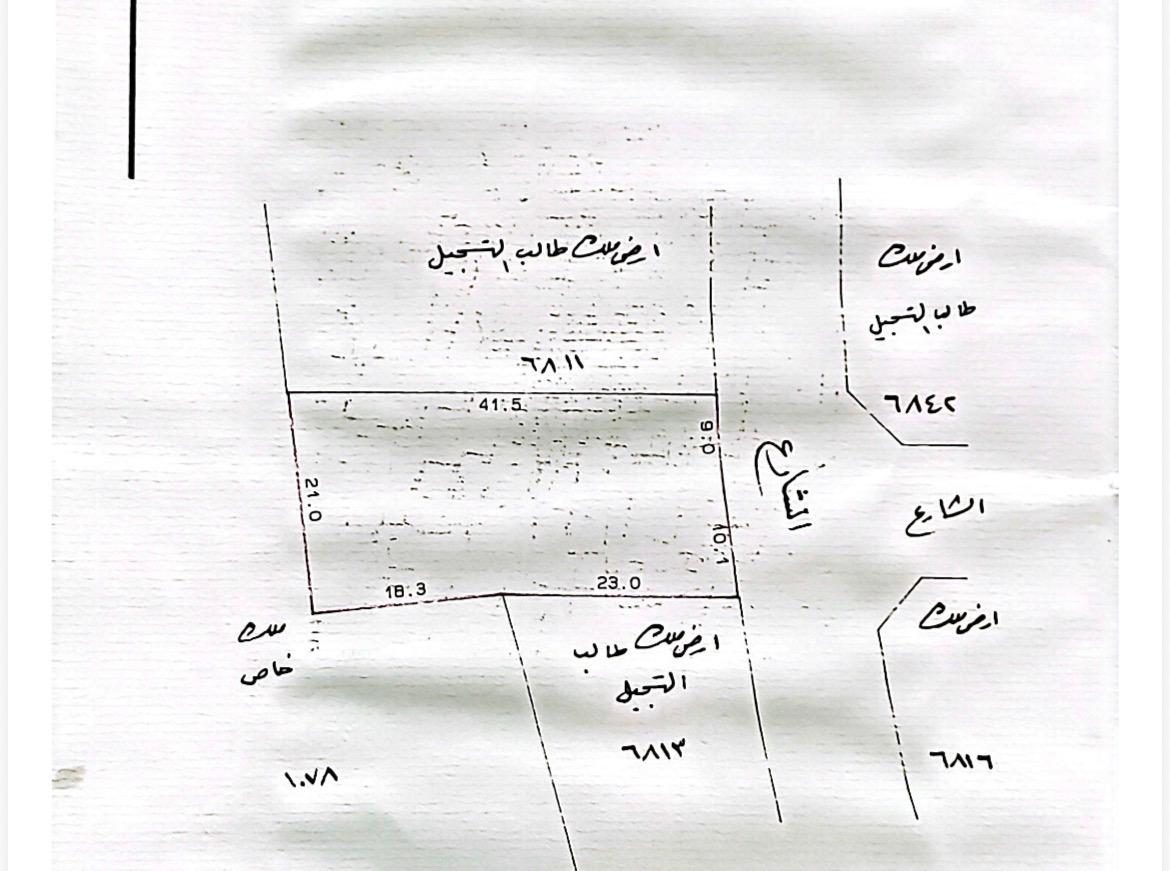 ارض ملك طالب التسجيل
ارض ملك
طالب التسجيل
٦٨١١
٦٨٤٢
41.5
9.0
الشارع
21.0
الشارع
10.1
18.3
23.0
ملك
خاص
ارض ملك طالب
التسجيل
ارض ملك
٦٨١٣
٦٨١٦
١٠٧٨